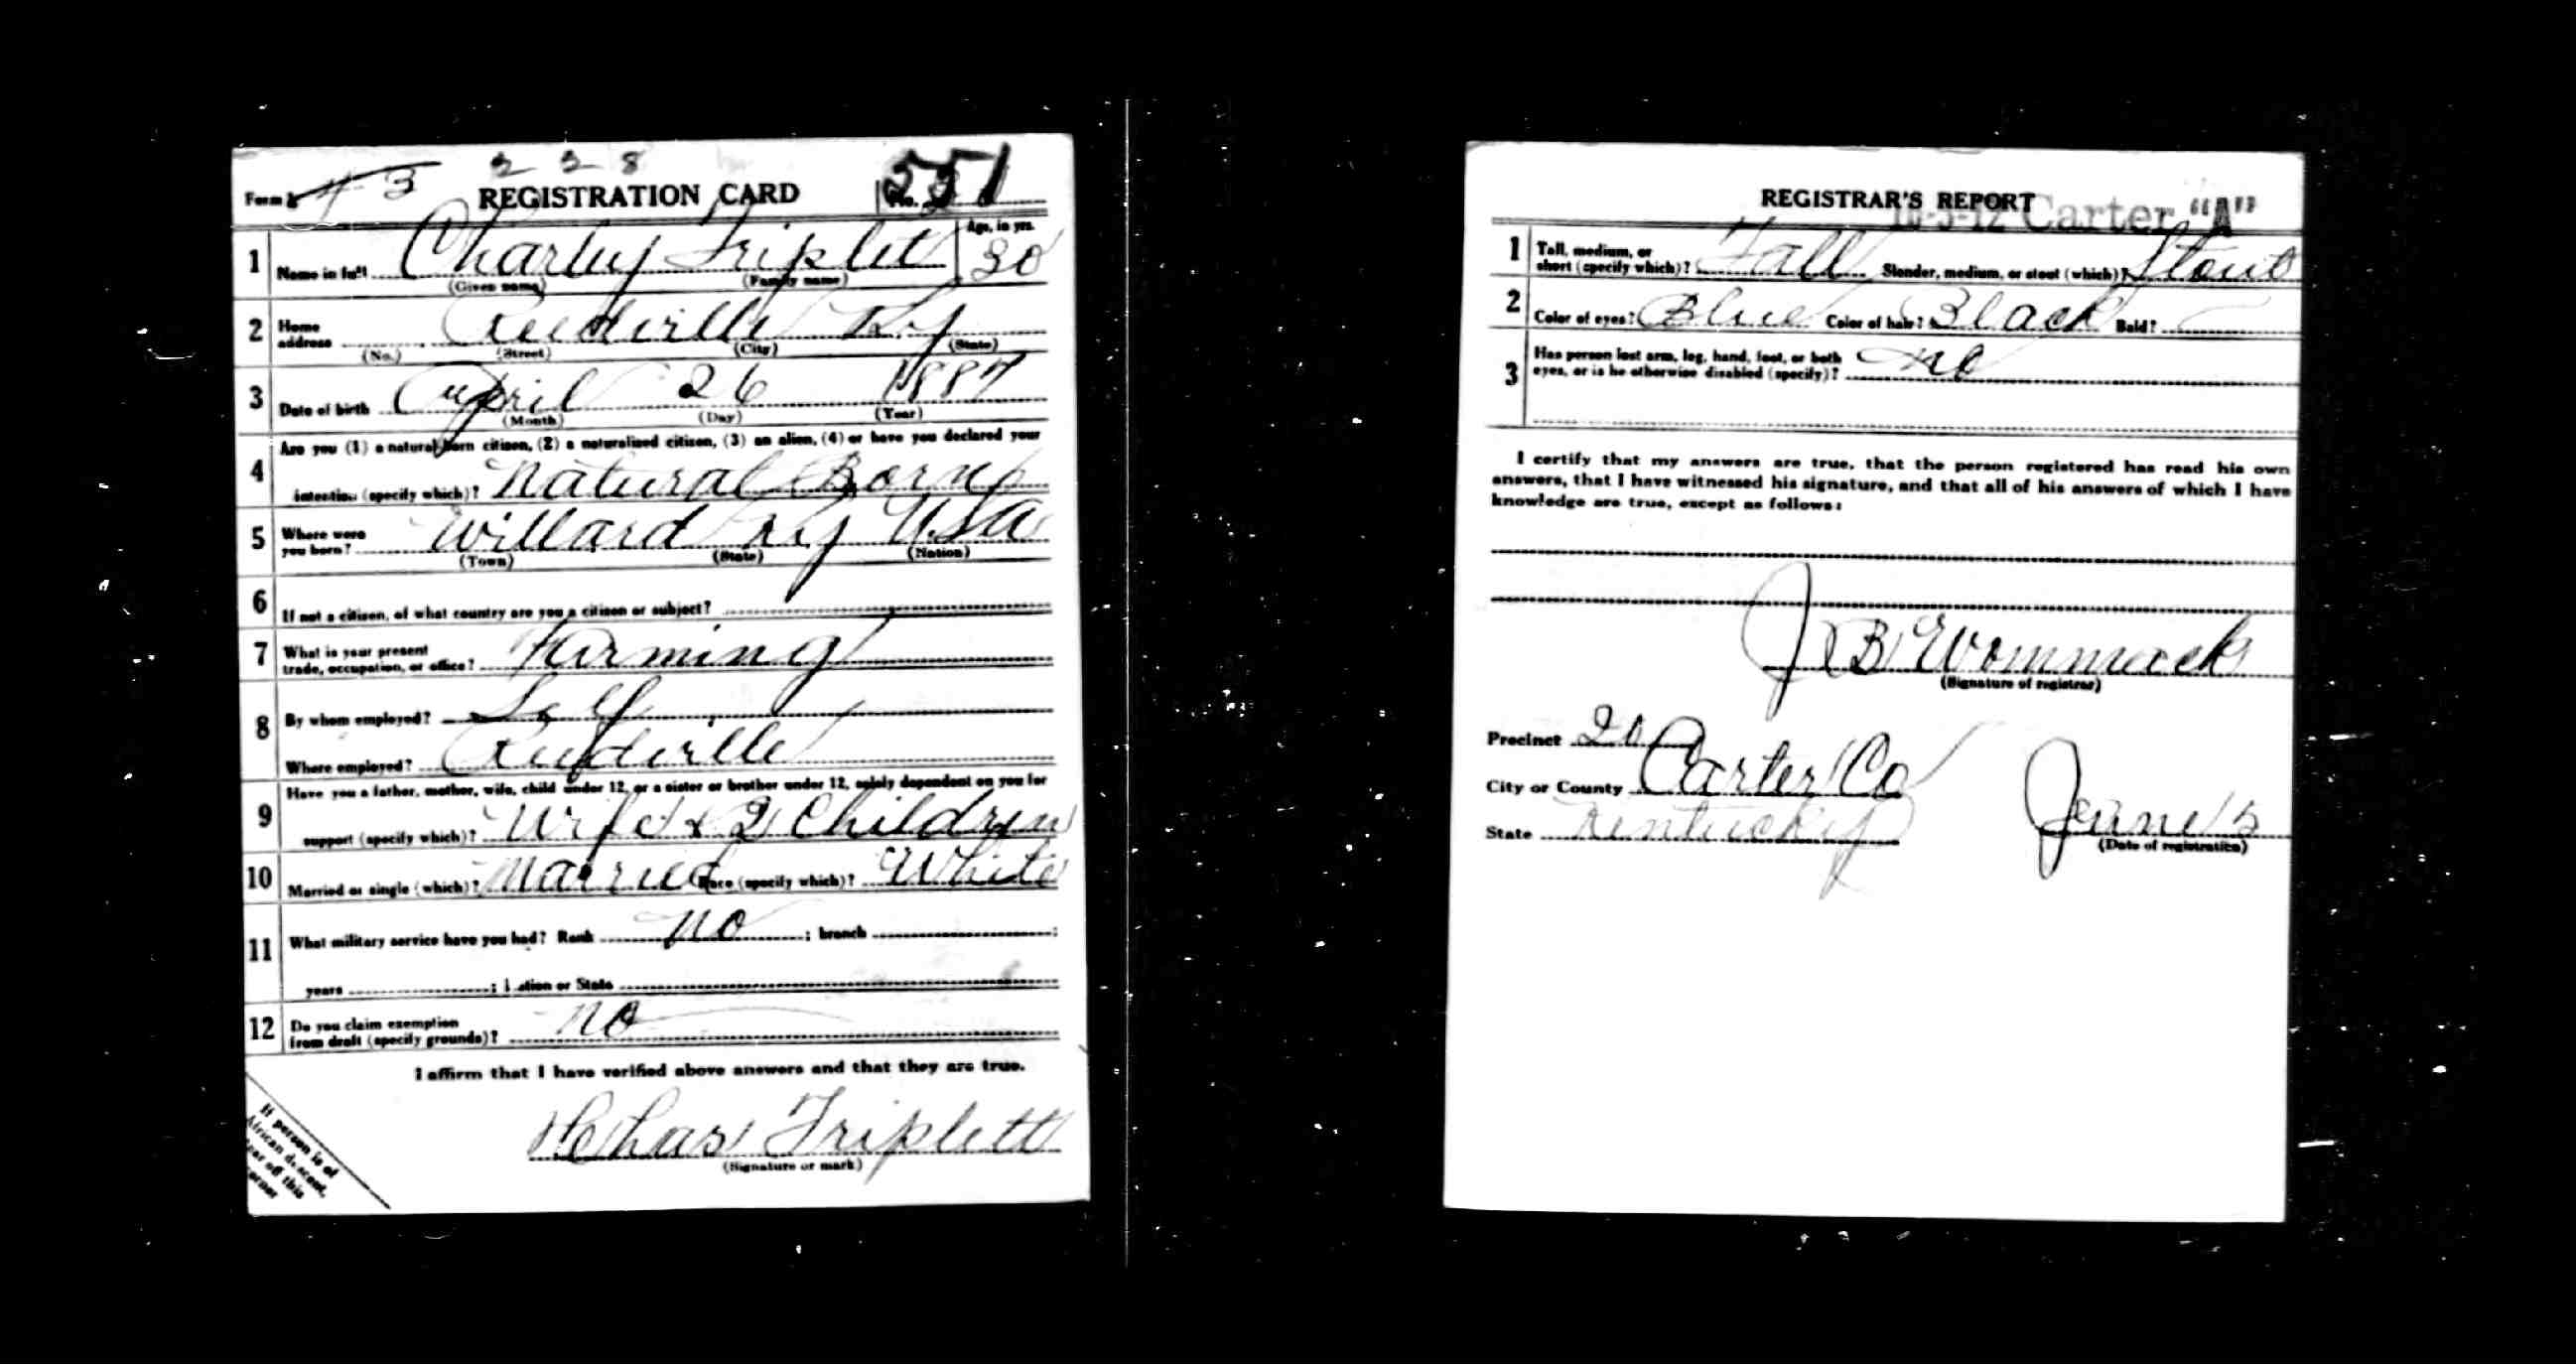 3 2 8
Form 1 43 REGISTRATION CARD No. 551
1 Name in full Charley Triplett Age, in yrs. 30
(Given name) (Family name)
2 Home address Reedville Ky
(No.) (Street) (City) (State)
3 Date of birth April 26 1887
(Month) (Day) (Year)
4 Are you (1) a natural-born citizen, (2) a naturalized citizen, (3) an alien, (4) or have you declared your
intention (specify which)? Natural Born
5 Where were you born? Willard Ky USA
(Town) (State) (Nation)
6 If not a citizen, of what country are you a citizen or subject?
7 What is your present trade, occupation, or office? Farming
8 By whom employed? Self
Where employed? Reedville
9 Have you a father, mother, wife, child under 12, or a sister or brother under 12, solely dependent on you for
support (specify which)? Wife & 2 Children
10 Married or single (which)? Married Race (specify which)? White
11 What military service have you had? Rank no ; branch ;
years ; Nation or State
12 Do you claim exemption from draft (specify grounds)? no
I affirm that I have verified above answers and that they are true.
Chas Triplett
(Signature or mark)
If person is of
African descent,
tear off this
corner
REGISTRAR'S REPORT
Carter "A"
1 Tall, medium, or short (specify which)? Tall Slender, medium, or stout (which)? Stout
2 Color of eyes? Blue Color of hair? Black Bald?
3 Has person lost arm, leg, hand, foot, or both eyes, or is he otherwise disabled (specify)? no
I certify that my answers are true, that the person registered has read his own
answers, that I have witnessed his signature, and that all of his answers of which I have
knowledge are true, except as follows:
J B Wommack
(Signature of registrar)
Precinct 20
City or County Carter Co
State Kentucky
June 5
(Date of registration)